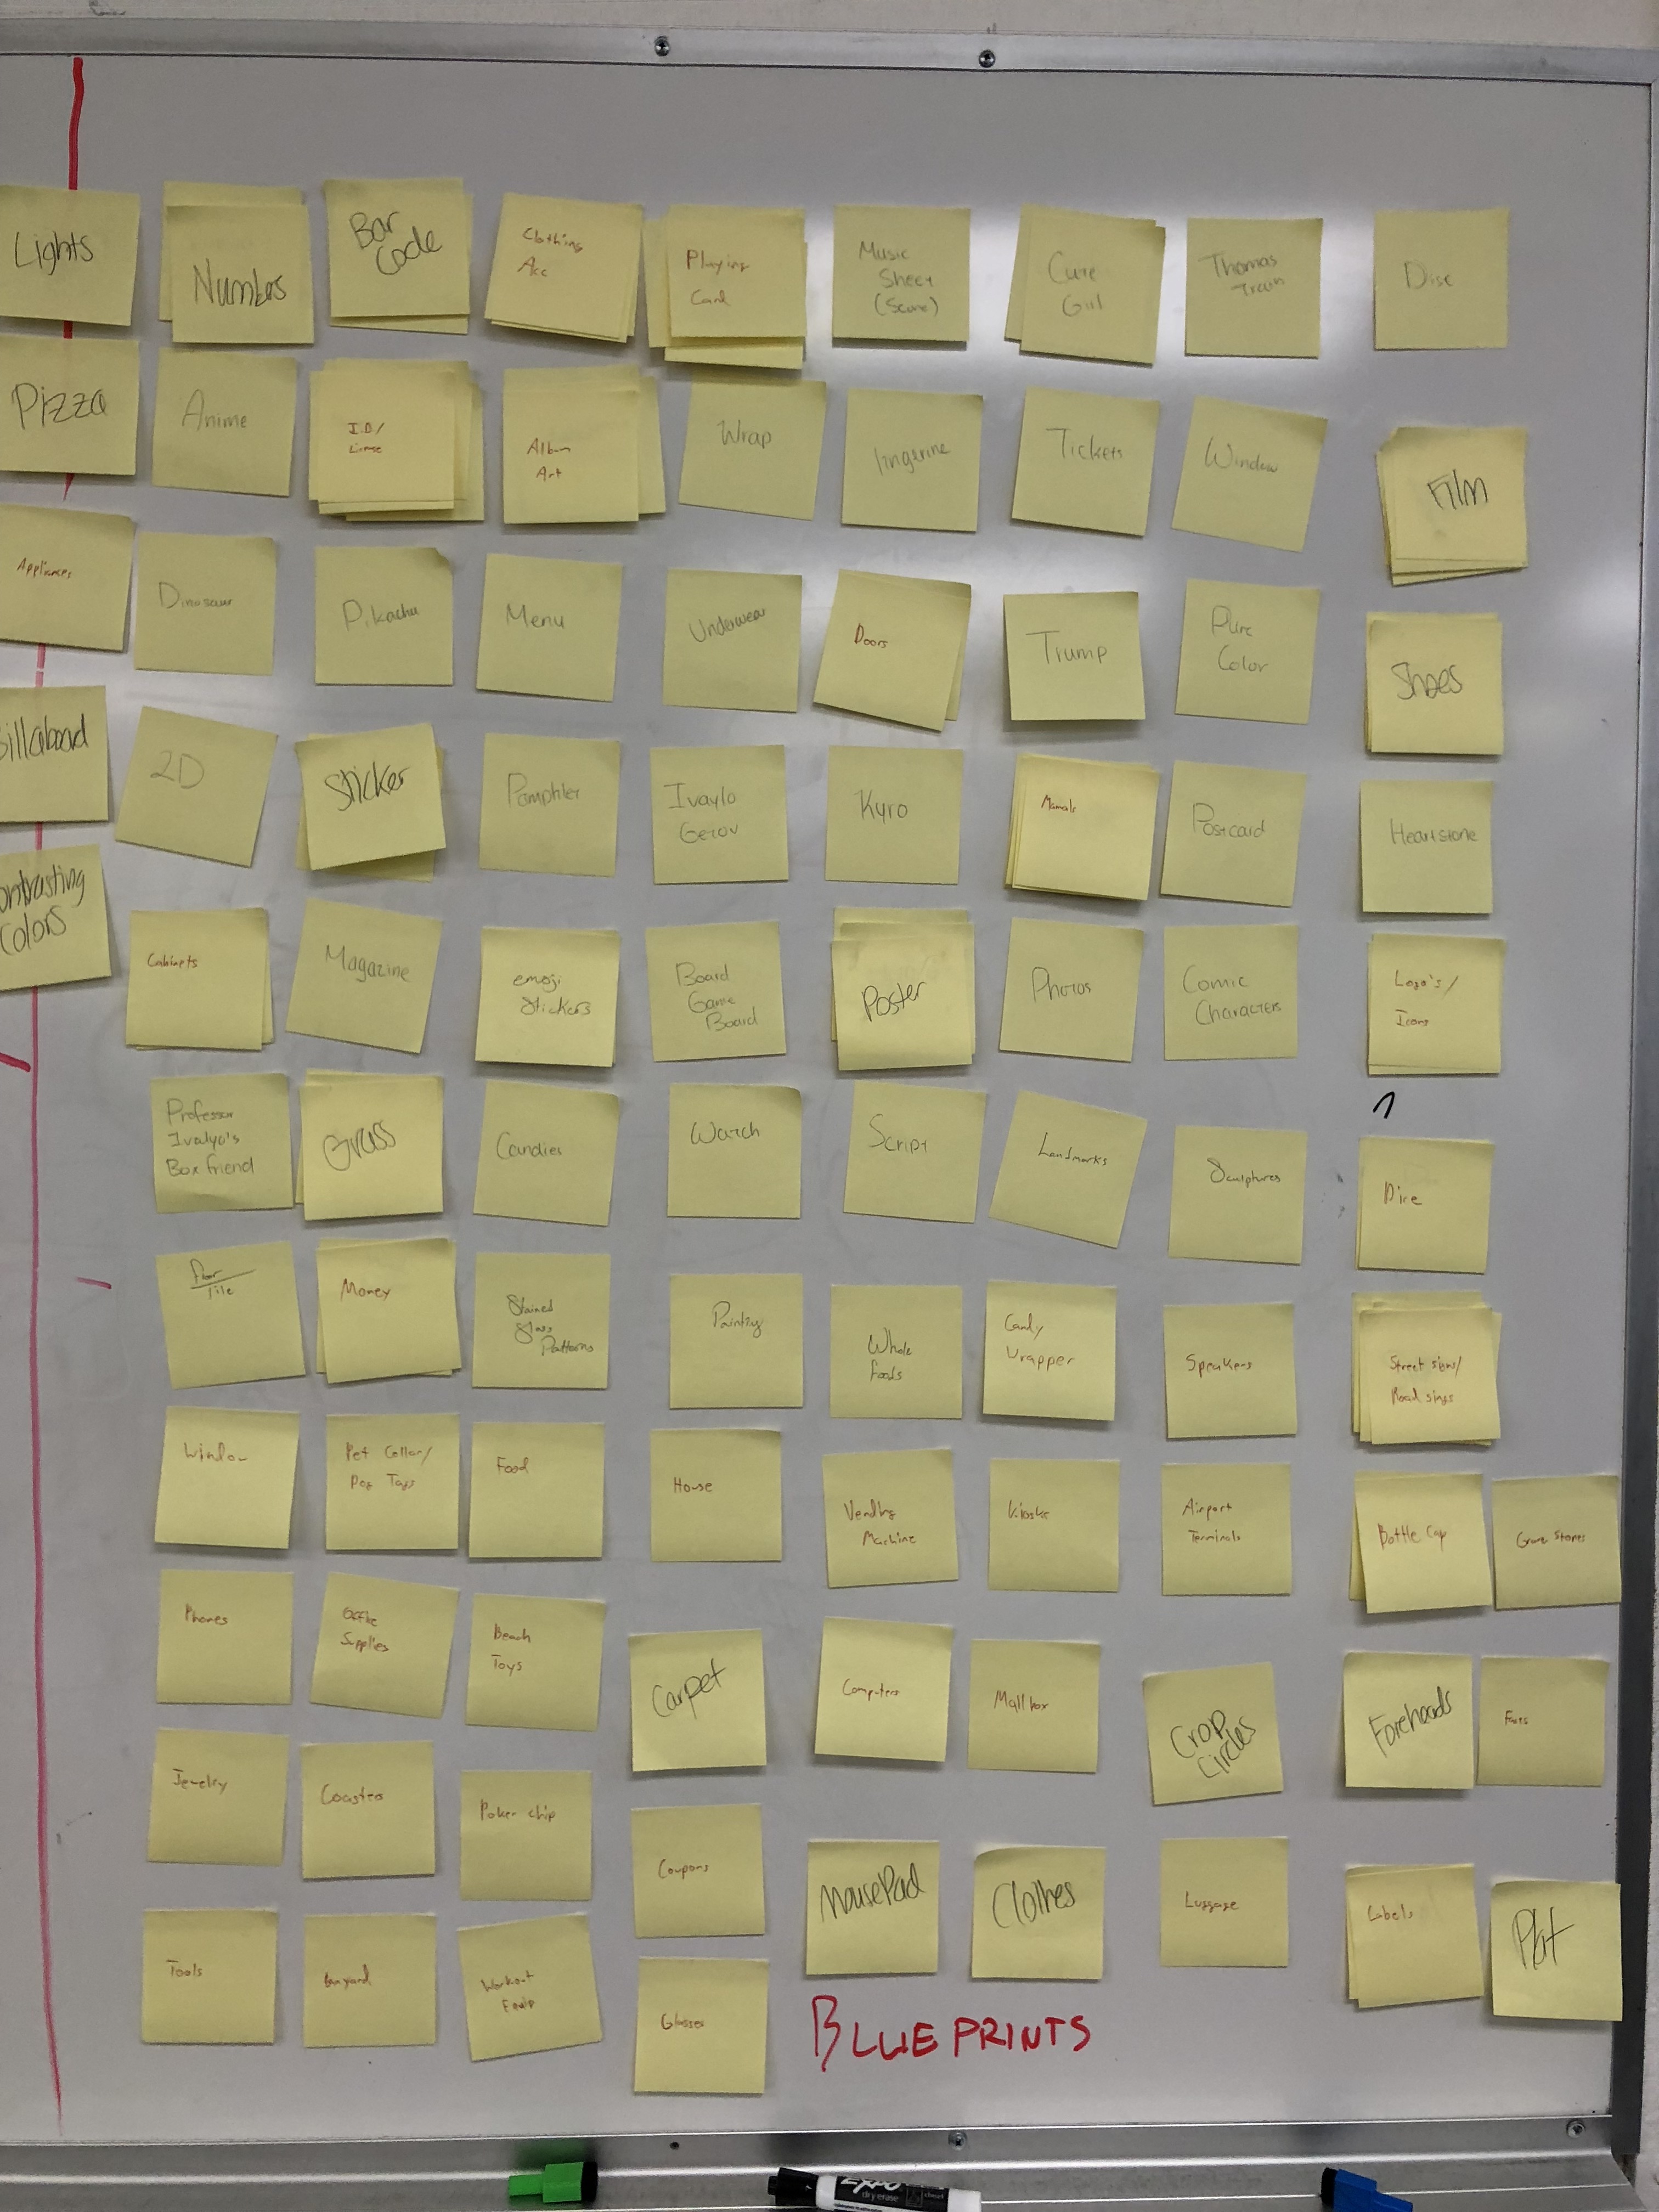 Lights
Numbers
Bar
Code
Clothing
Acc
Playing
Card
Music
Sheet
(Score)
Cute
Girl
Thomas
Train
Disc
Pizza
Anime
I.D/
Album
Art
Wrap
lingerine
Tickets
Window
Film
Appliances
Dinosaur
Pikachu
Menu
Underwear
Doors
Trump
Pure
Color
Shoes
illaboad
2D
Sticker
Pamphlet
Ivaylo
Getov
Kyro
Postcard
Heartstone
ontrasting
Colors
Cabinets
Magazine
emoji
Stickers
Board
Game
Board
Poster
Photos
Comic
Characters
Logo's/
Icons
Professor
Ivalyo's
Box friend
Grass
Candies
Watch
Script
Landmarks
Sculptures
Dice
floor
Tile
Money
Stained
Glass
Patterns
Painting
Whole
foods
Candy
Wrapper
Speakers
Street signs/
Road sings
Window
Pet Collar/
Dog Tags
Food
House
Vending
Machine
Kiosks
Airport
Terminals
Bottle Cap
Grave Stones
Phones
Office
Supplies
Beach
Toys
Carpet
Computers
Mailbox
Crop
Circles
Foreheads
Faces
Jewelry
Coasters
Poker chip
Coupons
MousePad
Clothes
Luggage
Labels
Tools
Workout
Equip
Glasses
BLUE PRINTS
EXPO
dry erase